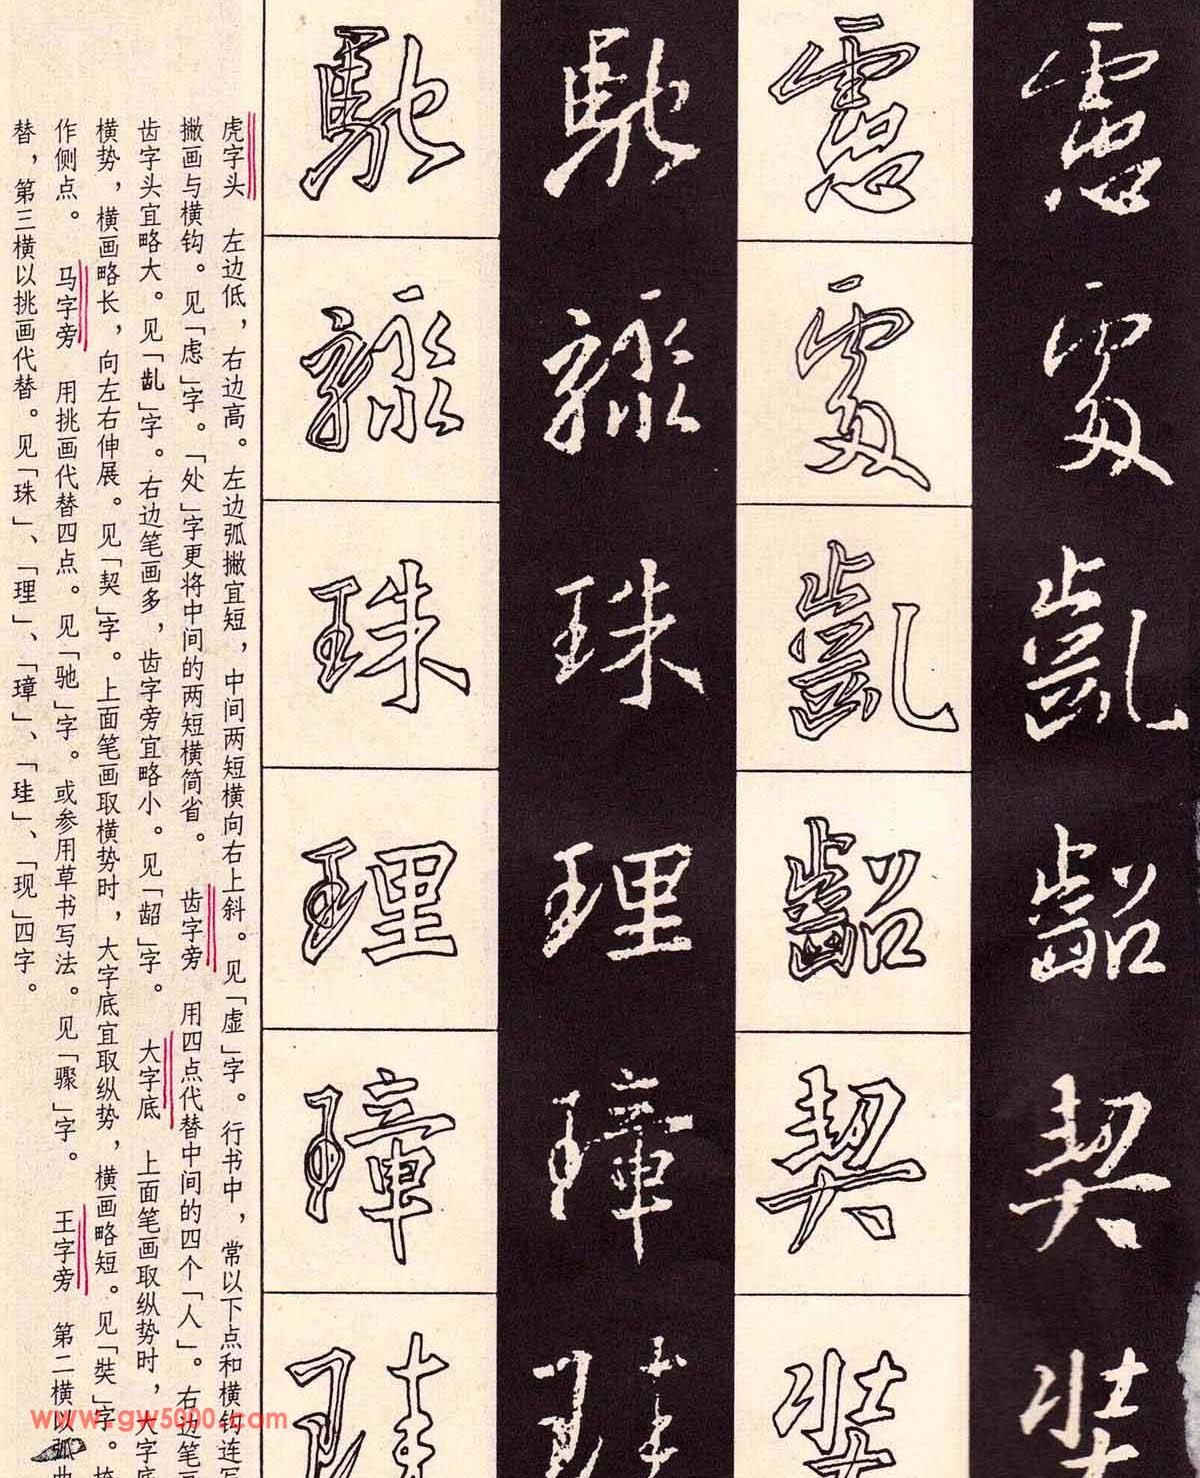 虎字头　左边低，右边高。左边弧撇宜短，中间两短横向右上斜。见「虚」字。行书中，常以下点和横钩连写
撇画与横钩。见「虑」字。「处」字更将中间的两短横简省。　齿字旁　用四点代替中间的四个「人」。右边笔画
齿字头宜略大。见「龀」字。右边笔画多，齿字旁宜略小。见「龆」字。　大字底　上面笔画取纵势时，大字底
横势，横画略长，向左右伸展。见「契」字。上面笔画取横势时，大字底宜取纵势，横画略短。见「奘」字。
作侧点。　马字旁　用挑画代替四点。见「驰」字。或参用草书写法。见「骤」字。　王字旁　第二横以弧曲
替，第三横以挑画代替。见「珠」、「理」、「璋」、「珪」、「现」四字。
處
齓
齠
契
奘
馳
珠
理
璋
珪
www.gw5000.com